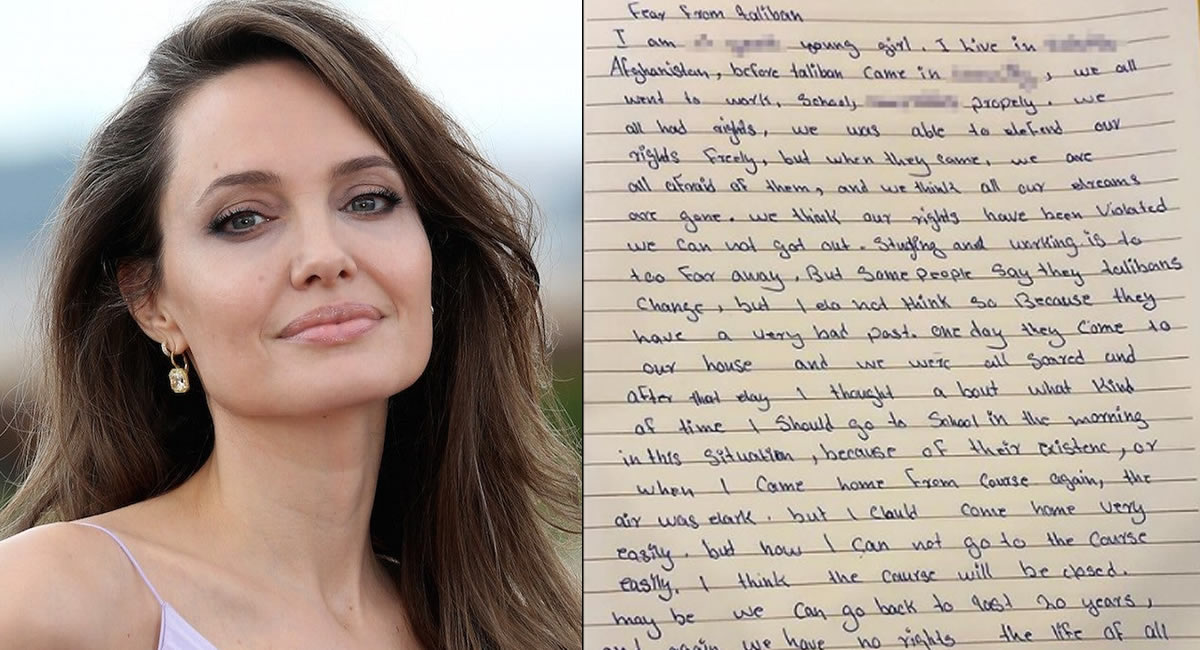 Fear From taliban
I am young girl. I live in
Afghanistan, before taliban Came in , we all
went to work, School, propely. we
all had rights, we was able to defend our
rights Freely, but when they came, we are
all afraid of them, and we think all our dreams
are gone. we think our rights have been Violated
we can not got out. Studing and working is to
too Far away. But Some people Say they talibans
Change, but I do not think so Because they
have a very bad past. one day they Came to
our house and we were all Scared and
after that day I thought a bout what kind
of time I Should go to School in the morning
in this Situation, because of their existenc, or
when I Came home From Course again, the
air was dark. but I Clauld come home Very
easily. but now I Can not go to the Course
easlly. I think the Course will be closed.
may be we can go back to last 20 years,
and again we have no rights the life of all